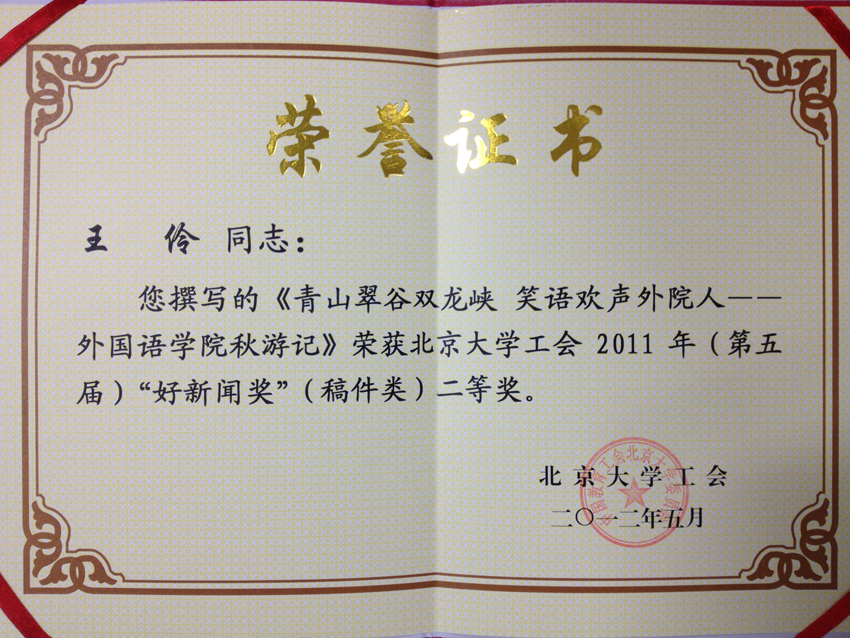 荣誉证书
王 伶 同志：
您撰写的《青山翠谷双龙峡 笑语欢声外院人——
外国语学院秋游记》荣获北京大学工会 2011 年（第五
届）“好新闻奖”（稿件类）二等奖。
北京大学工会
二〇一二年五月
中国教育工会北京大学委员会